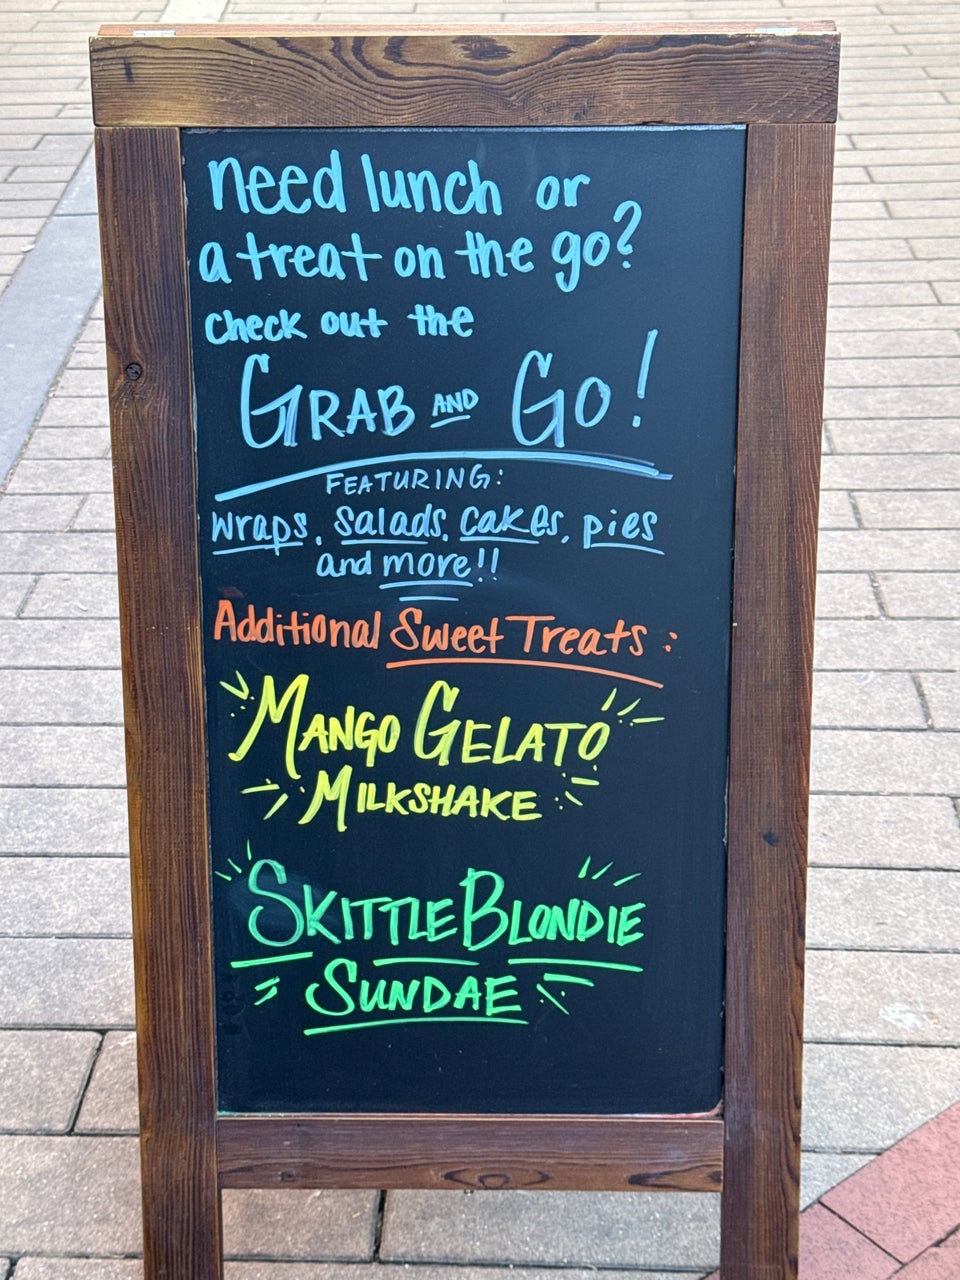 need lunch or
a treat on the go?
check out the
GRAB AND GO!
FEATURING:
wraps, salads, cakes, pies
and more!!
Additional Sweet Treats:
MANGO GELATO
MILKSHAKE
SKITTLE BLONDIE
SUNDAE